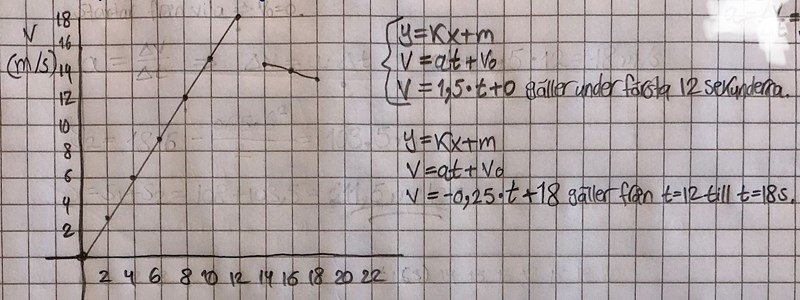 V
(m/s)
18
16
14
12
10
8
6
4
2
2 4 6 8 10 12 14 16 18 20 22
y=Kx+m
V=at+V0
V=1,5·t+0 gäller under första 12 sekunderna.
y=Kx+m
V=at+V0
V=-0,25·t+18 gäller från t=12 till t=18s.